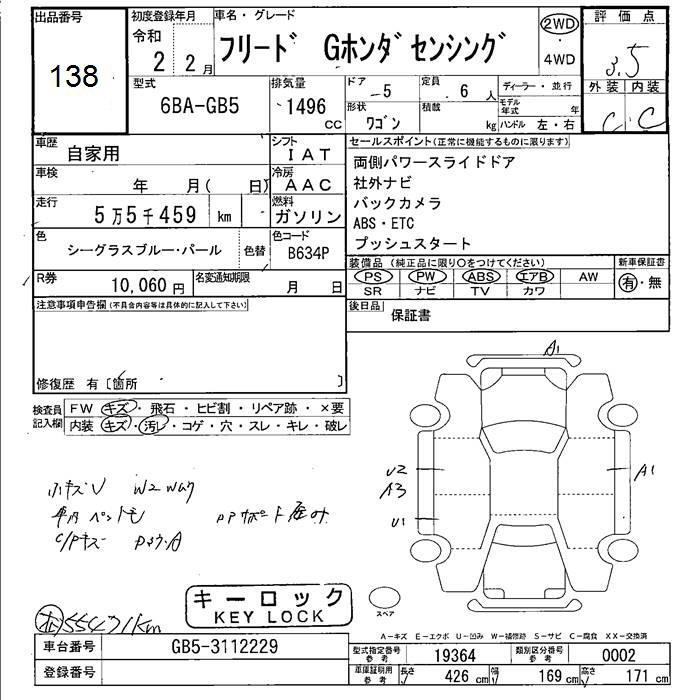 出品番号
138
初度登録年月
令和
2 2月
車名・グレード
フリード Gホンダセンシング
2WD
・
4WD
評価点
3.5
外装 内装
C C
型式
6BA-GB5
排気量
1496 CC
ドア
-5
定員
6 人
ディーラー・並行
形状
ワゴン
積載
kg
モデル年式 年
ハンドル 左・右
車歴
自家用
シフト
IAT
車検
年 月( 日)
冷房
AAC
走行
5万5千459 km
燃料
ガソリン
色
シーグラスブルー・パール
色替
色コード
B634P
R券
10,060 円
名変通知期限
月 日
セールスポイント(正常に機能するものに限ります)
両側パワースライドドア
社外ナビ
バックカメラ
ABS・ETC
プッシュスタート
装備品(純正品に限り○をつけてください)
PS PW ABS エアB AW
SR ナビ TV カワ
新車保証書
有・無
後日品
保証書
注意事項申告欄(不具合内容等は具体的に記入して下さい)
修復歴 有〔箇所 〕
検査員記入欄
FW キズ・飛石・ヒビ割・リペア跡・×要
内装 キズ・汚し・コゲ・穴・スレ・キレ・破レ
小キズU W2 Way
C/Pキズ
A1
U2
A3
U1
A1
スペア
キーロック
KEY LOCK
A-キズ E-エクボ U-凹み W-補修跡 S-サビ C-腐食 XX-交換済
55471km
車台番号
GB5-3112229
登録番号
型式指定番号
参考
19364
類別区分番号
参考
0002
車庫証明用
参考
長さ 426 cm
幅 169 cm
高さ 171 cm